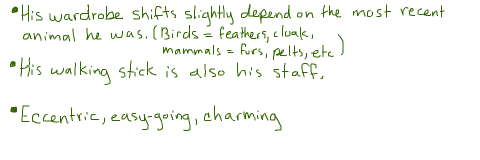 • His wardrobe shifts slightly depend on the most recent
animal he was. (Birds = feathers, cloak,
mammals = furs, pelts, etc)
• His walking stick is also his staff.
• Eccentric, easy-going, charming